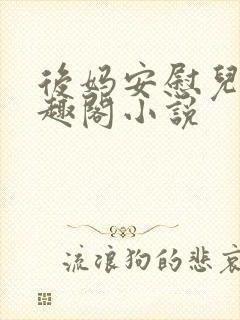 後妈安慰兒
趣閣小說
流浪狗的悲哀